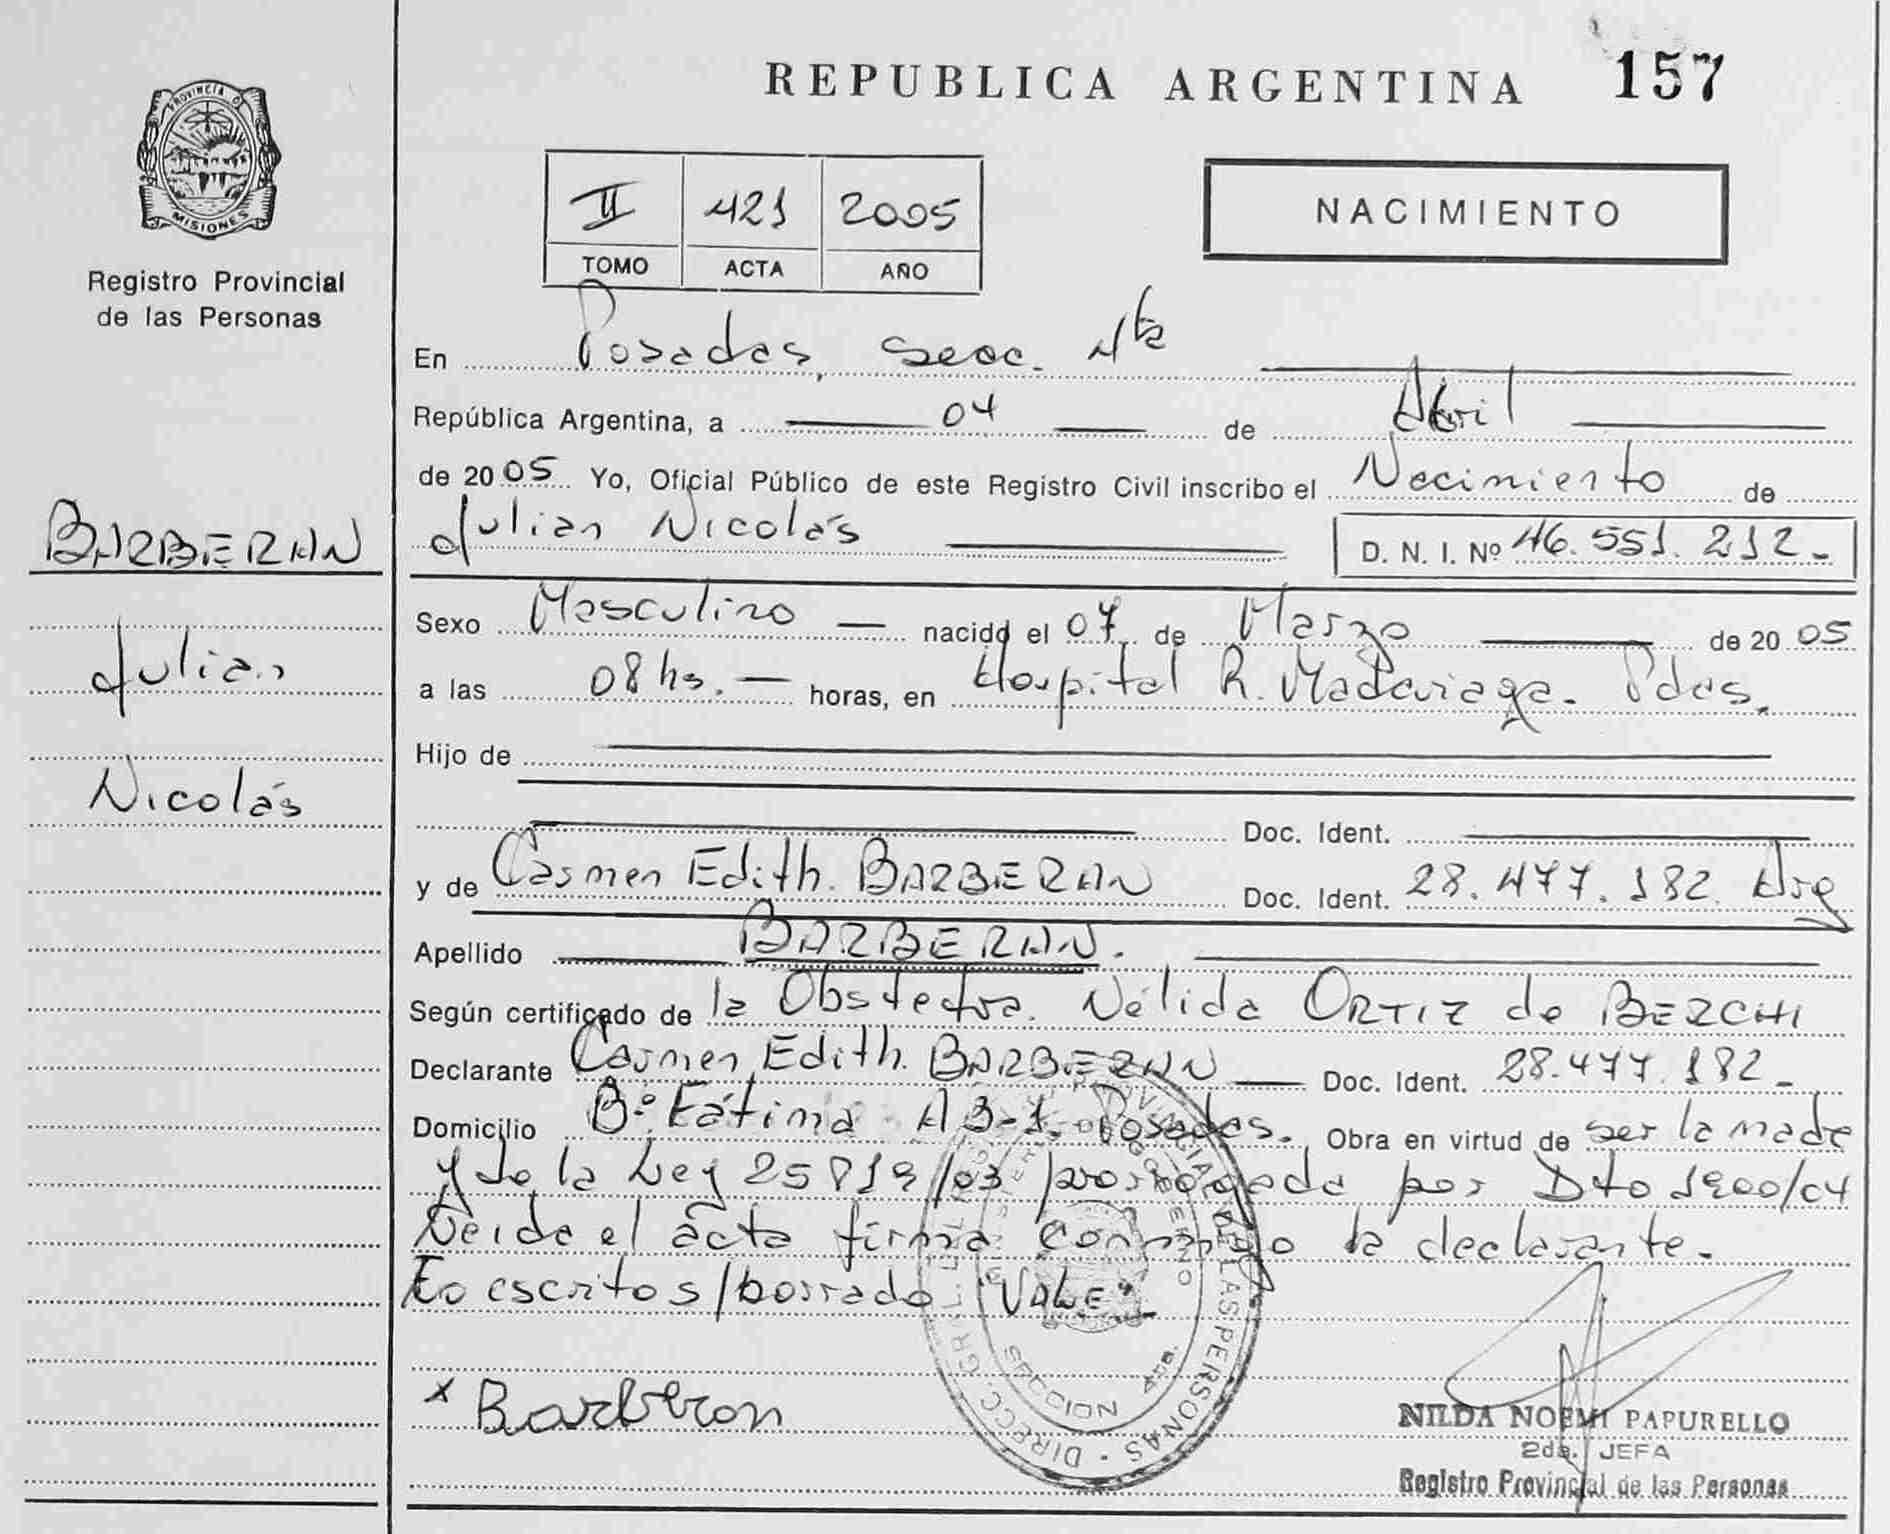 REPUBLICA ARGENTINA 157
PROVINCIA DE
MISIONES
Registro Provincial
de las Personas
II 421 2005
TOMO ACTA AÑO
NACIMIENTO
En Posadas, Secc. 4ta
República Argentina, a 04 de Abril
de 2005 Yo, Oficial Público de este Registro Civil inscribo el Nacimiento de
Julian Nicolás D. N. I. Nº 46.551.212.-
BARBERAN
Julian
Nicolás
Sexo Masculino — nacido el 07 de Marzo de 2005
a las 08 hs. — horas, en Hospital R. Madariaga. Pdas.
Hijo de
Doc. Ident.
y de Carmen Edith. BARBERAN Doc. Ident. 28.477.182. Arg
Apellido BARBERAN.
Según certificado de la Obstetra. Nélida ORTIZ de BERCHI
Declarante Carmen Edith. BARBERAN — Doc. Ident. 28.477.182.-
Domicilio Bº Fátima A 3-1. Posadas. Obra en virtud de ser la madre
y de la Ley 25819/03 prorrogada por Dto 1900/04
Leida el acta firma conmigo la declarante.
Lo escrito s/borrado: "VALE"
x Barberan
SECCION 4ta.
NILDA NOEMI PAPURELLO
2da. JEFA
Registro Provincial de las Personas